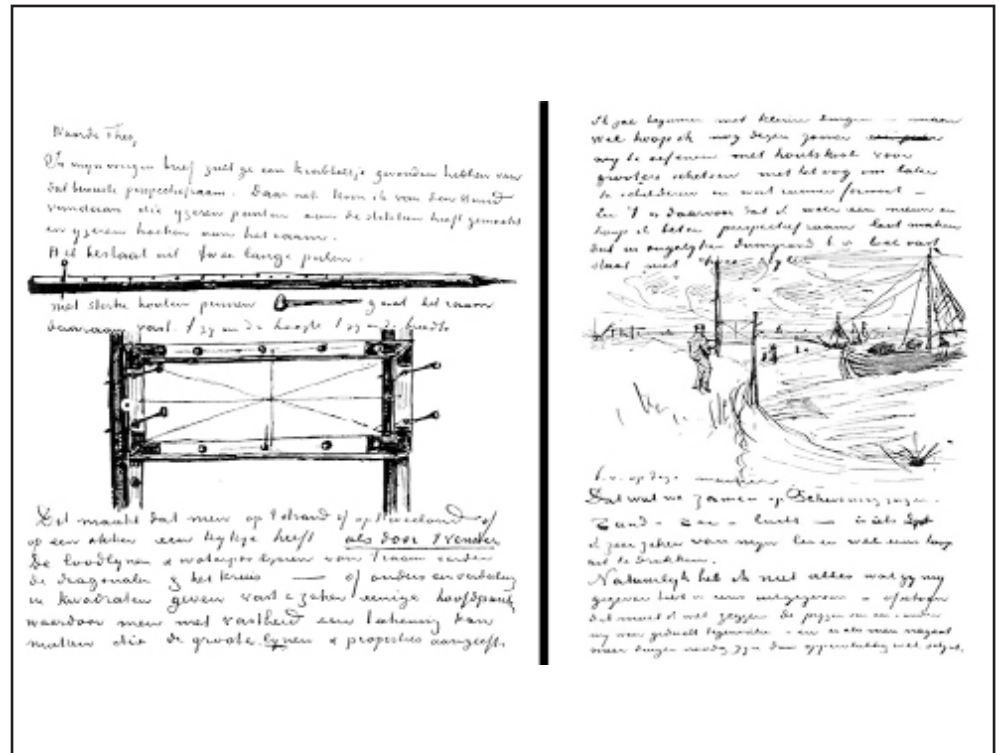 Waarde Theo,
In mijn vorigen brief zult ge een krabbeltje gevonden hebben van
dat bewuste perspectiefraam. Daar net kom ik van den smid
vandaan die yzeren punten aan de stokken heeft gemaakt
en yzeren hoeken aan het raam.
Het bestaat uit twee lange palen.
met sterke houten pennen gaat het raam
daaraan vast. 't zy in de hoogte 't zy in de breedte
Dit maakt dat men op 't strand of op 't weiland of
op een akker een kykje heeft als door 't venster
De loodlynen & waterpaslynen van 't raam verder
de diagonalen & het kruis — of anders een verdeeling
in kwadraten geven vast & zeker eenige hoofdpunten
waardoor men met vastheid een teekening kan
maken die de groote lynen & proporties aangeeft.
Ik zal beginnen met kleine dingen — maar
wel hoop ik nog dezen zomer
my te oefenen met houtskool voor
grooter schetsen met het oog om later
te schilderen in wat ruimer formaat —
En 't is daarvoor dat ik weer een nieuw en
hoop ik beter perspectiefraam laat maken
dat in ongelyken duingrond b.v. vast
staat met twee
b.v. op deze manier
Dat wat we zamen op Scheveningen zagen.
Zand - Zee - lucht — is iets
ik zeer zeker van myn leven wel eens hoop
uit te drukken.
Natuurlyk heb ik niet alles wat gy my
gegeven hebt in eens uitgegeven - ofschoon
dat moest ik wel zeggen de pryzen van een & ander
my zeer geducht tegenvielen - en er als men nagaat
meer dingen noodig zyn dan oppervlakkig wel schynt.